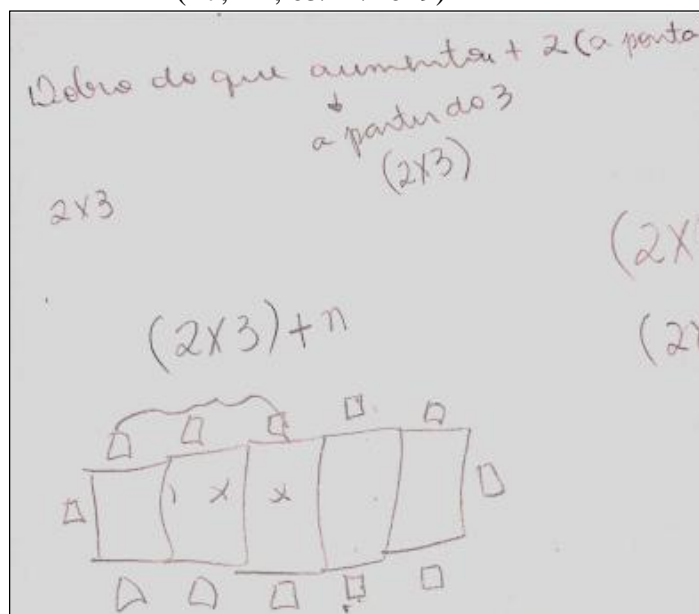 Dobro do que aumentou + 2 (a ponta
a partir do 3
(2x3)
2x3
(2x
(2x3)+n
(2x
x x